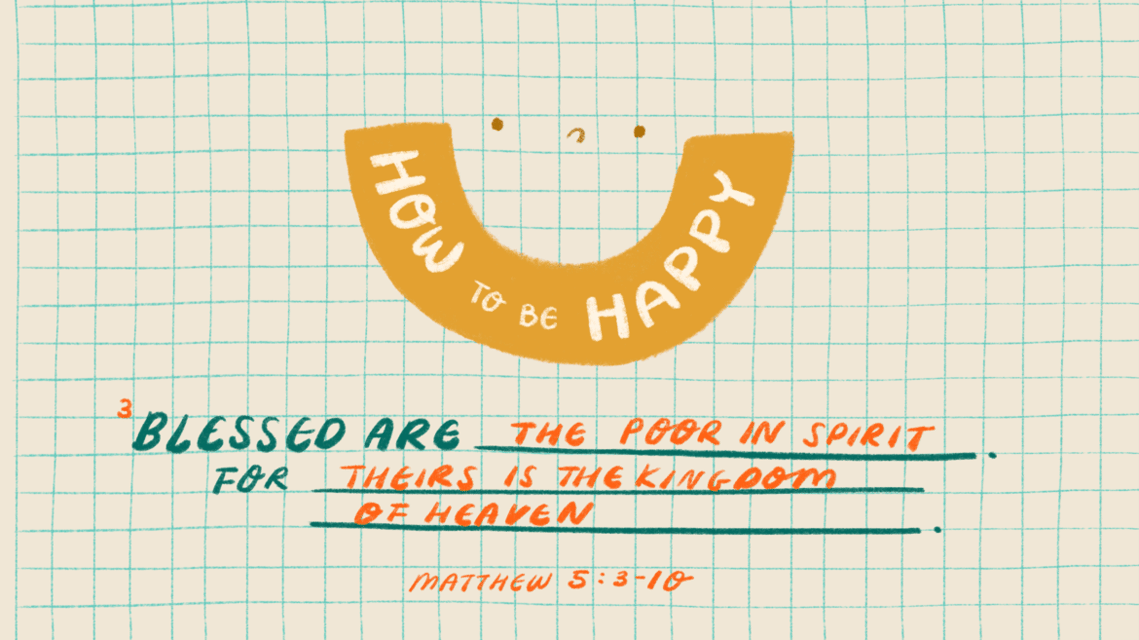 HOW TO BE HAPPY
3 BLESSED ARE THE POOR IN SPIRIT.
FOR THEIRS IS THE KINGDOM
OF HEAVEN.
MATTHEW 5:3-10